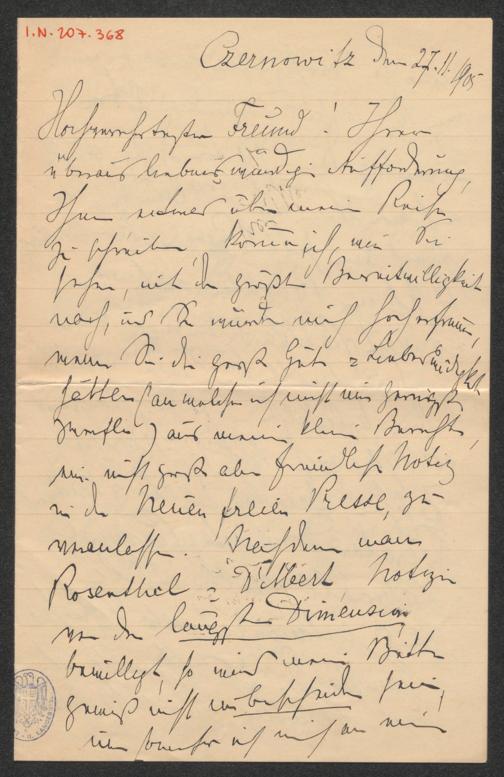 I.N. 207.368
Czernowitz den 27.11.905
Hochverehrtester Freund! Ihrer
überaus liebenswürdigen Aufforderung,
Ihnen über meine Reise
zu schreiben, komme ich, wie Sie
sehen, mit der größten Bereitwilligkeit
nach, und Sie würden mich hocherfreuen,
wenn Sie die große Güte & Liebenswürdigkeit
hätten (an welcher ich nicht im geringsten
zweifle) aus meinem kleinen Berichte,
eine nicht große aber freundliche Notiz
in der Neuen freien Presse, zu
veranlassen. Nachdem man
Rosenthal & D'Albert Notizen
von der längsten Dimension
bewilligt, so wird meine Bitte
gewiß nicht unbescheiden sein,
ich mich an